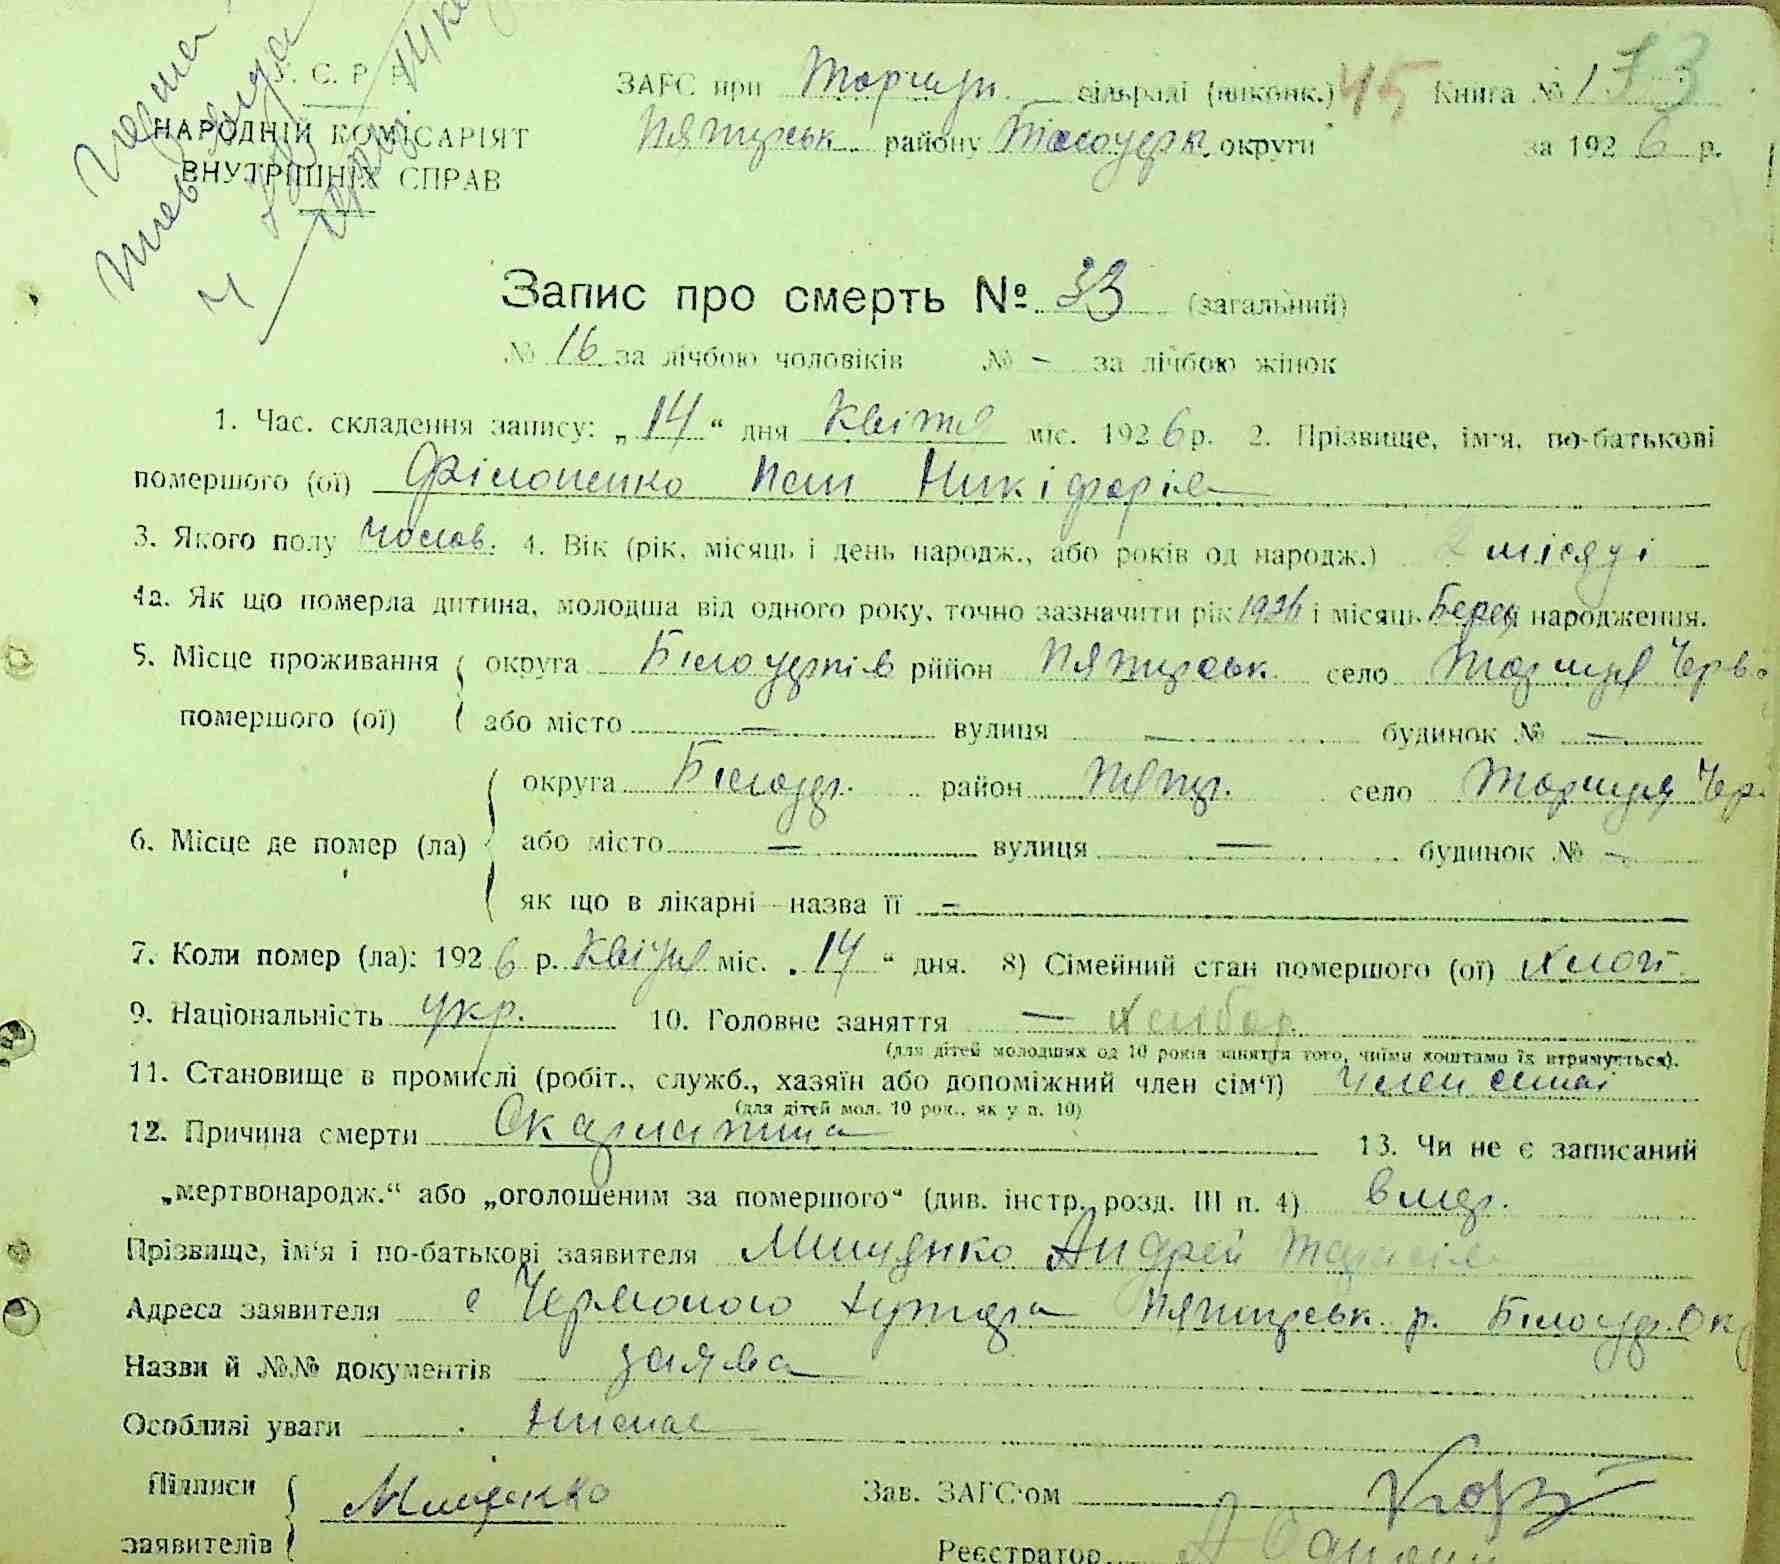 У. С. Р. Р.
НАРОДНІЙ КОМІСАРІЯТ
ВНУТРІШНІХ СПРАВ
ЗАГС при Торчиця сільраді (виконк.) 45 Книга № 173
Пятигорськ району Білоцерк. округи за 1926 р.
Запис про смерть № 33 (загальний)
№ 16 за лічбою чоловіків № – за лічбою жінок
1. Час. складення запису: „14“ дня Квітня міс. 1926 р. 2. Прізвище, ім'я, по-батькові
помершого (ої) Філоненко Нікіфорів
3. Якого полу чолов. 4. Вік (рік, місяць і день народж., або років од народж.) 2 місяці
4а. Як що померла дитина, молодша від одного року, точно зазначити рік 1926 і місяць народження.
5. Місце проживання округа Білоцерків рийон Пятигорськ село
помершого (ої) або місто — вулиця — будинок № —
округа Білоцер. район Пятиг. село
6. Місце де помер (ла) або місто — вулиця — будинок № –
як що в лікарні—назва її –
7. Коли помер (ла): 1926 р. Квітня міс. „14“ дня. 8) Сімейний стан помершого (ої) хлоп.
9. Національність укр. 10. Головне заняття — хлібор.
(для дітей молодших од 10 років заняття того, чиїми коштами їх втримується).
11. Становище в промислі (робіт., служб., хазяїн або допоміжний член сім'ї) член семаї
(для дітей мол. 10 рок., як у п. 10)
12. Причина смерти Скарлатина 13. Чи не є записаний
„мертвонародж.“ або „оголошеним за помершого“ (див. інстр. розд. III п. 4) вмер.
Прізвище, ім'я і по-батькові заявителя Мищенко Андрей
Адреса заявителя с Червоного хутора Пятигорськ. р. Білоцер. Ок
Назви й №№ документів заява
Особливі уваги Нимає
Підписи Мищенко Зав. ЗАГС'ом
заявителів Реєстратор